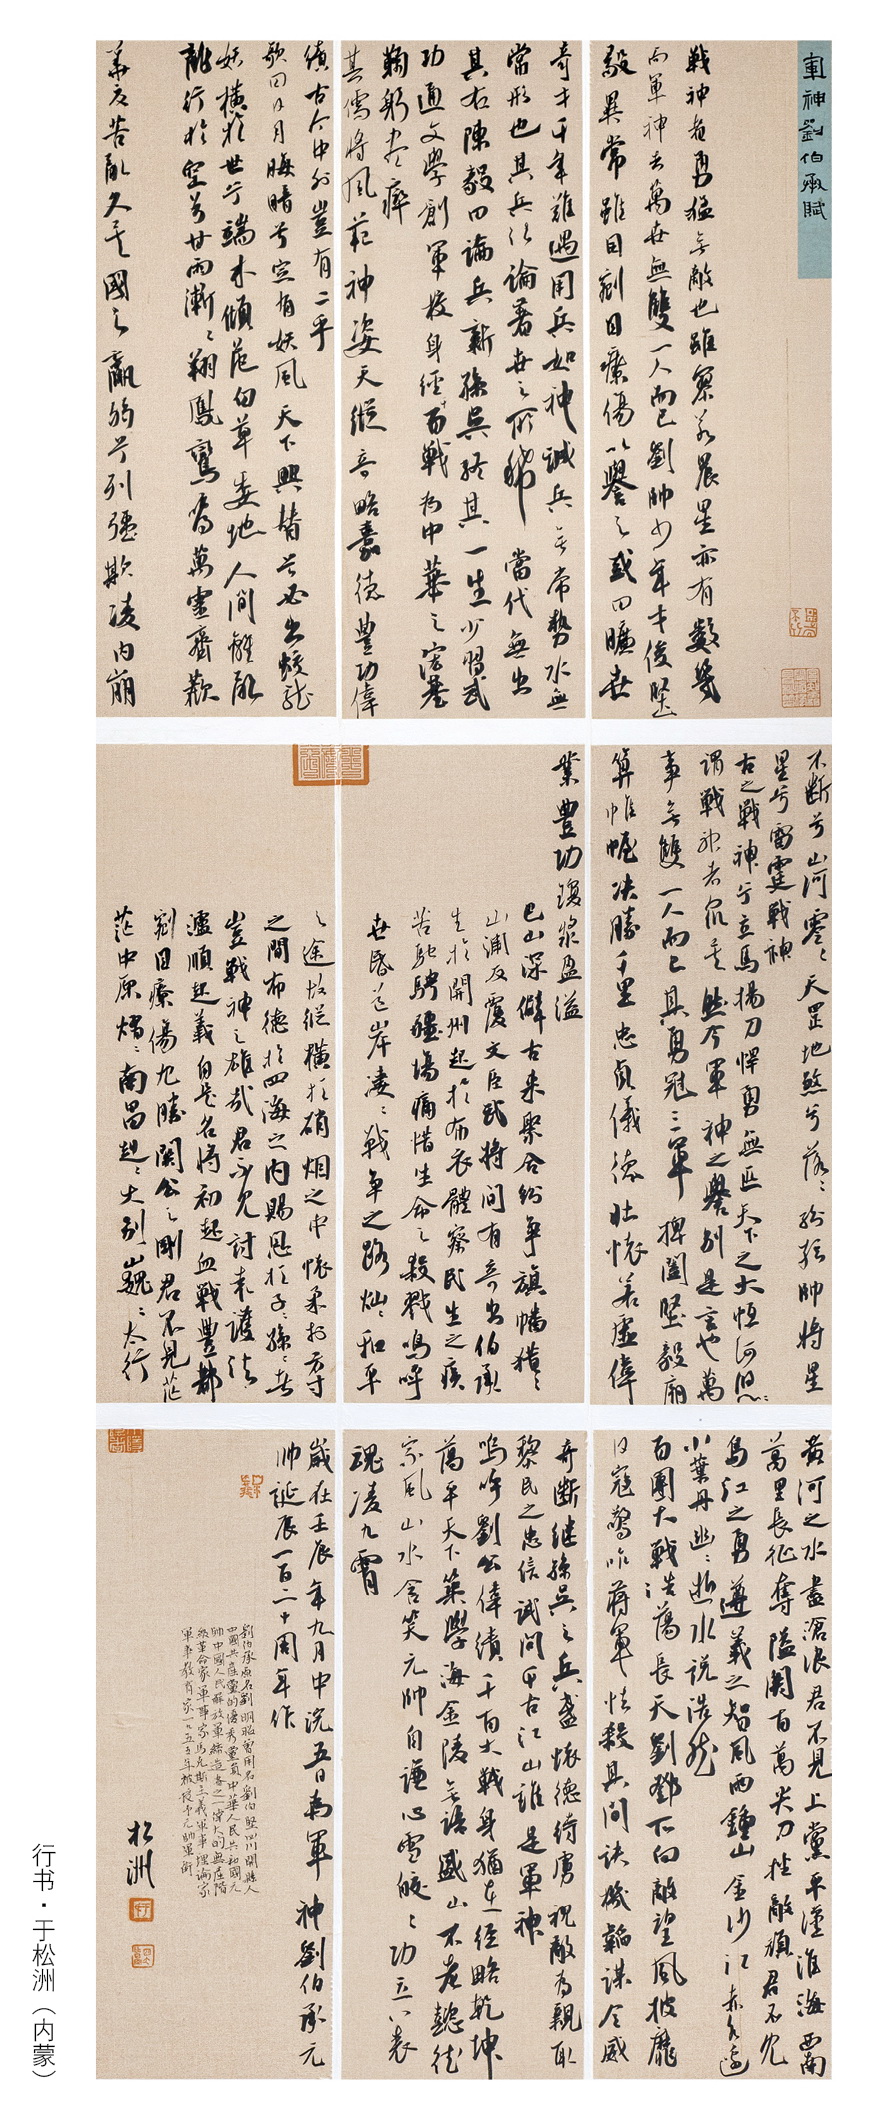 軍神劉伯承賦
戰神者勇猛無敵也雖寥若晨星亦有數幾
而軍神者萬世無雙一人而已劉帥少年才俊堅
毅異常雖目剜目療傷以譽之或曰曠世
奇才千年難遇用兵如神誠兵無常勢水無
常形也其兵法論著世之所稀當代無出
其右陳毅曰論兵新孫吳終其一生少習武
功通文學創軍校身經百戰為中華之
鞠躬盡瘁
其儒將風範神姿天縱音略嘉德豐功偉
績古今中外豈有二乎
歌曰日月晦暗兮定有妖風天下興替兮必出蛟龍
妖橫於世兮端木傾范白草委地人間離亂
龍行於空兮甘雨漸漸翔鳳鸞兮萬靈齊歡
華夏苦亂久矣國之羸弱兮列強欺凌內崩
不斷兮山河零零天罡地煞兮落落帥將星
星兮雷霆戰神
古之戰神兮立馬揚刀悍勇無匹天下之大恒河
謂戰神者眾矣然今軍神之譽別是言也萬
事無雙一人而已其勇冠三軍捭闔堅毅廟
算帷幄決勝千里忠貞儀德壯懷若虛偉
業豐功瓊漿盈溢
巴山深僻古來聚合紛爭旗幡獵獵
山浦反覆文臣武將間有奇出伯承
生於開州起於布衣體察民生之疾
苦馳騁疆場痛惜生命之殺戮嗚呼
世昏花岸淒淒戰爭之路燦燦和平
之途故縱橫於硝煙之中懷柔於方寸
之間布德於四海之內賜恩於子子孫孫者
豈戰神之雄哉君不見討袁護法
瀘順起義自是名將初起血戰豐都
剜目療傷尤勝關公之剛君不見茫
茫中原熠熠南昌起起大別山巍巍太行
黃河之水盡滄浪君不見上黨平漢淮海西南
萬里長征奪隘關百萬尖刀挫敵頑君不見
烏江之勇遵義之智風雨鍾山金沙江赤水遠
小葉丹幽幽逝水說浩然
百團大戰浩蕩長天劉鄧所向敵望風披靡
日寇驚咋蔣軍怯殺其間訣機韜謀令威
奇斷繼孫吳之兵盞懷德待虜視敵為親取
黎民之忠信試問千古江山誰是軍神
嗚呼劉公偉績千百大戰身猶在經略乾坤
蕩平天下築學海金陵無語盛山不老懿德
宗風山水含笑元帥自謙心雪皎皎功立八表
魂凌九霄
歲在壬辰年九月中浣五日為軍神劉伯承元
帥誕辰一百二十周年作
劉伯承原名劉明昭曾用名劉伯堅四川開縣人
中國共產黨的優秀黨員中華人民共和國元
帥中國人民解放軍締造者之一偉大的無產階
級革命家軍事家馬克斯主義軍事理論家
軍事教育家一九五五年被授予元帥軍銜
松洲
行书·于松洲（内蒙）